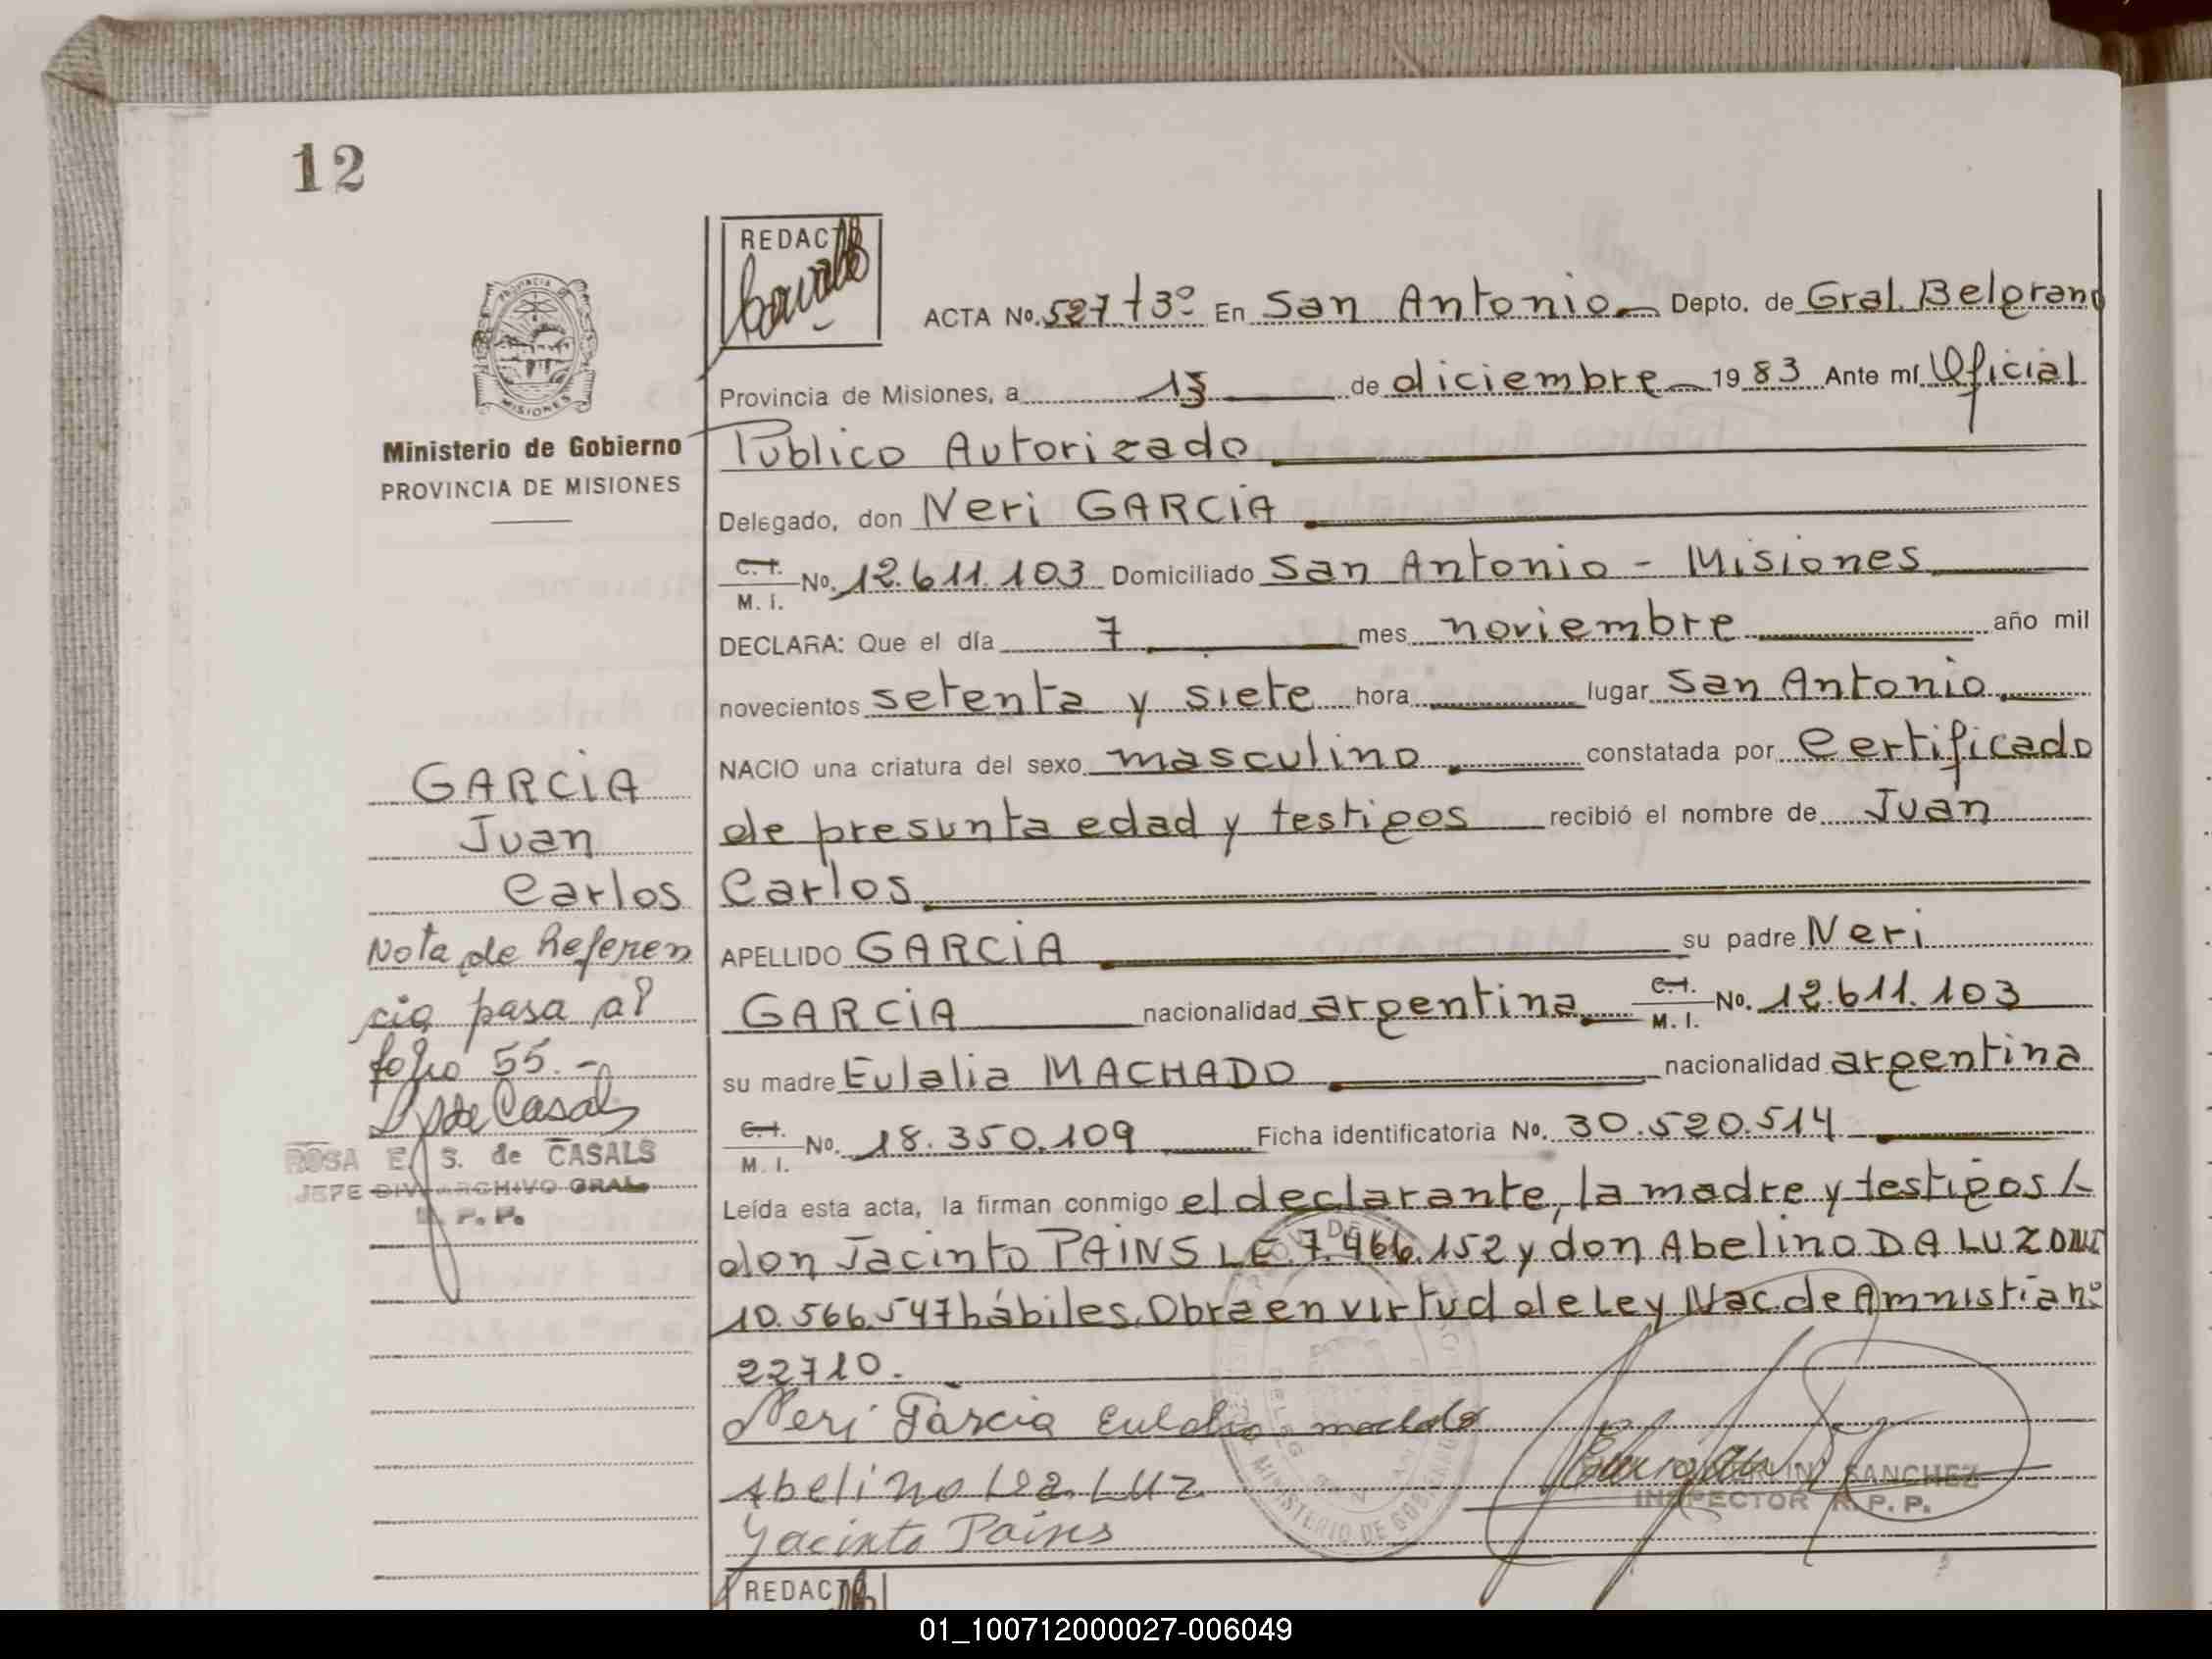 12
REDACTO
ACTA No. 527 t3º En San Antonio Depto. de Gral. Belgrano
Provincia de Misiones, a 13 de diciembre 1983 Ante mí Oficial
Público Autorizado
Delegado, don Neri GARCIA
C. I. M. I. No. 12.611.103 Domiciliado San Antonio - Misiones
DECLARA: Que el día 7 mes noviembre año mil
novecientos setenta y siete hora lugar San Antonio
NACIO una criatura del sexo masculino constatada por Certificado
de presunta edad y testigos recibió el nombre de Juan
Carlos
APELLIDO GARCIA su padre Neri
GARCIA nacionalidad argentina C. I. M. I. No. 12.611.103
su madre Eulalia MACHADO nacionalidad argentina
C. I. M. I. No. 18.350.109 Ficha identificatoria No. 30.520.514
Leída esta acta, la firman conmigo el declarante, la madre y testigos
don Jacinto PAINS LE 7.466.152 y don Abelino DA LUZ DNI
10.566.547 hábiles. Obra en virtud de Ley Nac. de Amnistia nº
22710.
Neri Garcia Eulalia machado
Abelino Da LUZ
Yacinto Pains
SANCHEZ
INSPECTOR R. P. P.
MINISTERIO DE GOBIERNO
REDACTO
PROVINCIA DE MISIONES
Ministerio de Gobierno
PROVINCIA DE MISIONES
GARCIA
Juan
Carlos
Nota de Referen
cia pasa al
folio 55.-
ROSA E. S. de CASALS
JEFE DIV. ARCHIVO GRAL.
R. P. P.
01_100712000027-006049